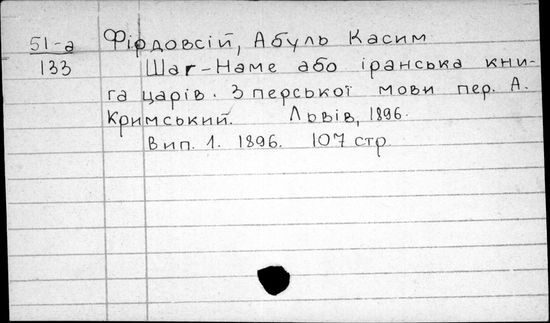 51-а Фірдовсій, Абуль Касим
133 Шаг-Наме або іранська кни-
га царів. З перської мови пер. А.
Кримський. Львів, 1896.
Вип. 1. 1896. 107 стр.